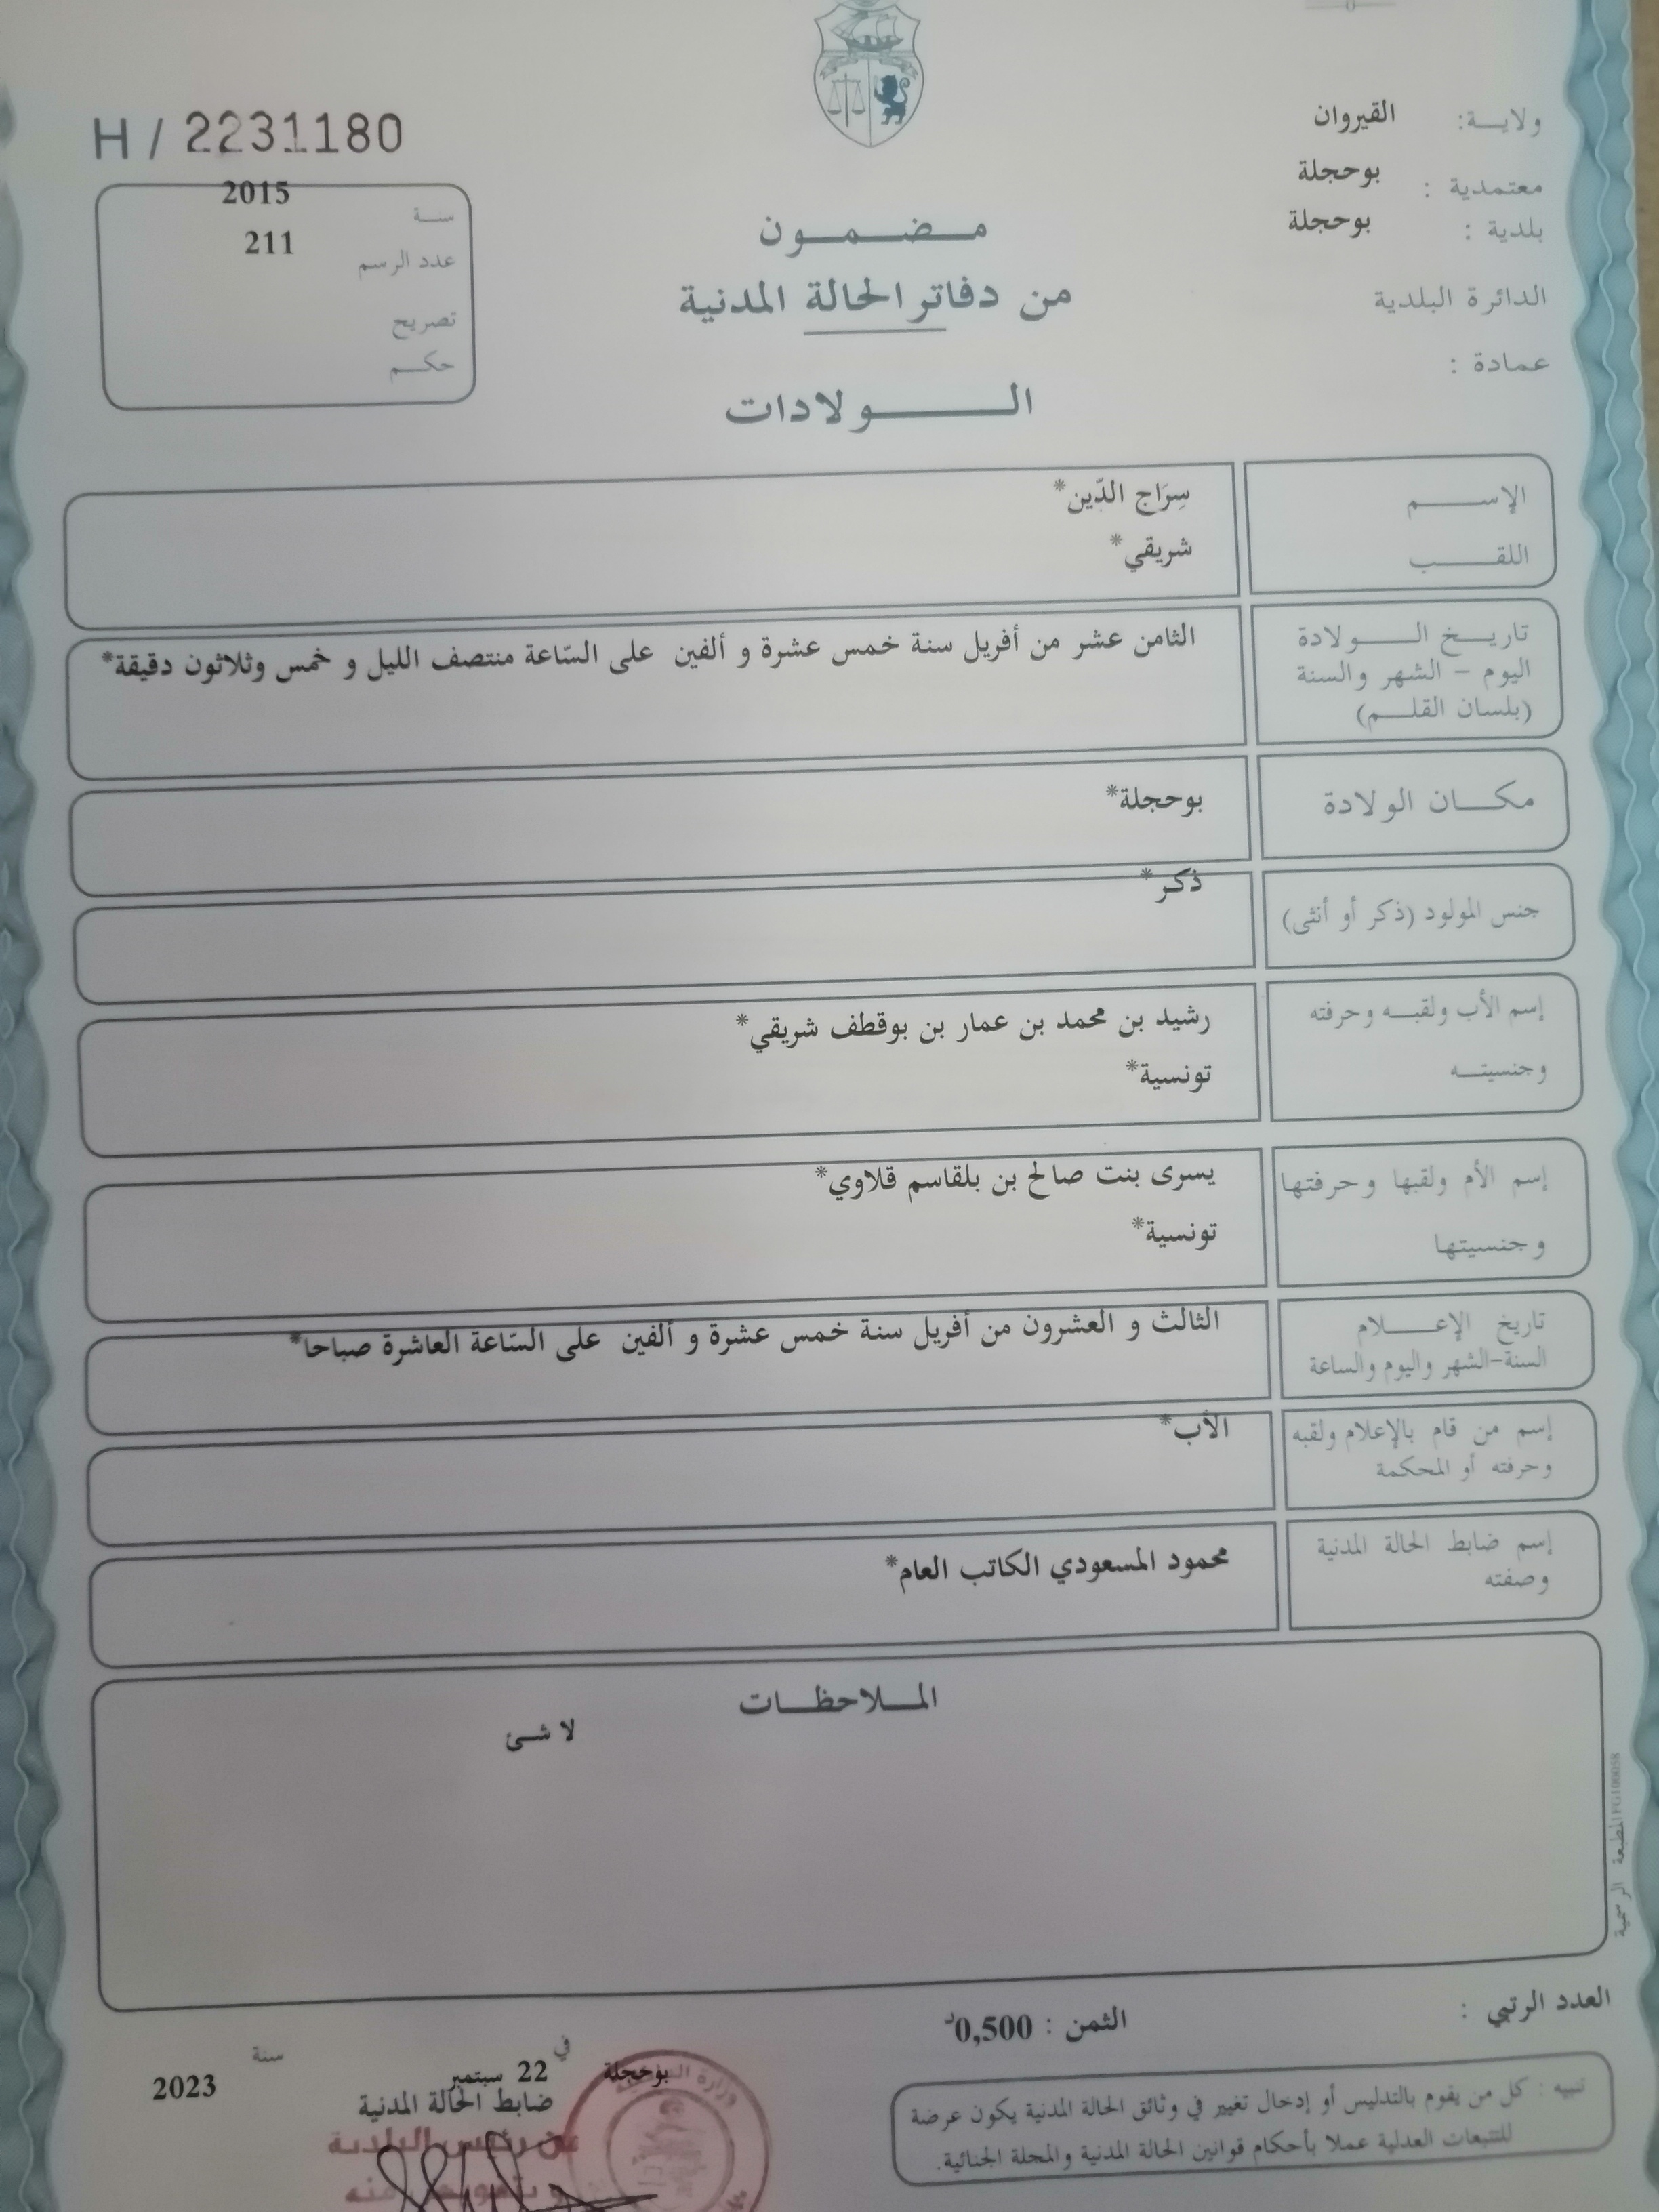 ولاية: القيروان
معتمدية : بوحجلة
بلدية : بوحجلة
الدائرة البلدية
عمادة :
H / 2231180
سنة 2015
عدد الرسم 211
تصريح
حكم
مضمون
من دفاتر الحالة المدنية
الولادات
الإسم سِرَاج الدّين*
اللقب شريقي*
تاريخ الولادة
اليوم - الشهر والسنة
(بلسان القلم)
الثامن عشر من أفريل سنة خمس عشرة و ألفين على السّاعة منتصف الليل و خمس وثلاثون دقيقة*
مكان الولادة بوحجلة*
جنس المولود (ذكر أو أنثى) ذكر*
إسم الأب ولقبه وحرفته رشيد بن محمد بن عمار بن بوقطف شريقي*
وجنسيته تونسية*
إسم الأم ولقبها وحرفتها يسرى بنت صالح بن بلقاسم قلاوي*
وجنسيتها تونسية*
تاريخ الإعلام
السنة-الشهر واليوم والساعة
الثالث و العشرون من أفريل سنة خمس عشرة و ألفين على السّاعة العاشرة صباحا*
إسم من قام بالإعلام ولقبه
وحرفته أو المحكمة
الأب*
إسم ضابط الحالة المدنية
وصفته
محمود المسعودي الكاتب العام*
الملاحظات
لا شئ
المطبعة الرسمية FG100058
العدد الرتبي :
الثمن : 0,500د
تنبيه : كل من يقوم بالتدليس أو إدخال تغيير في وثائق الحالة المدنية يكون عرضة
للتتبعات العدلية عملا بأحكام قوانين الحالة المدنية والمجلة الجنائية.
بوحجلة في 22 سبتمبر سنة 2023
ضابط الحالة المدنية
عن رئيس البلدية
و بتفويض منه
وزارة